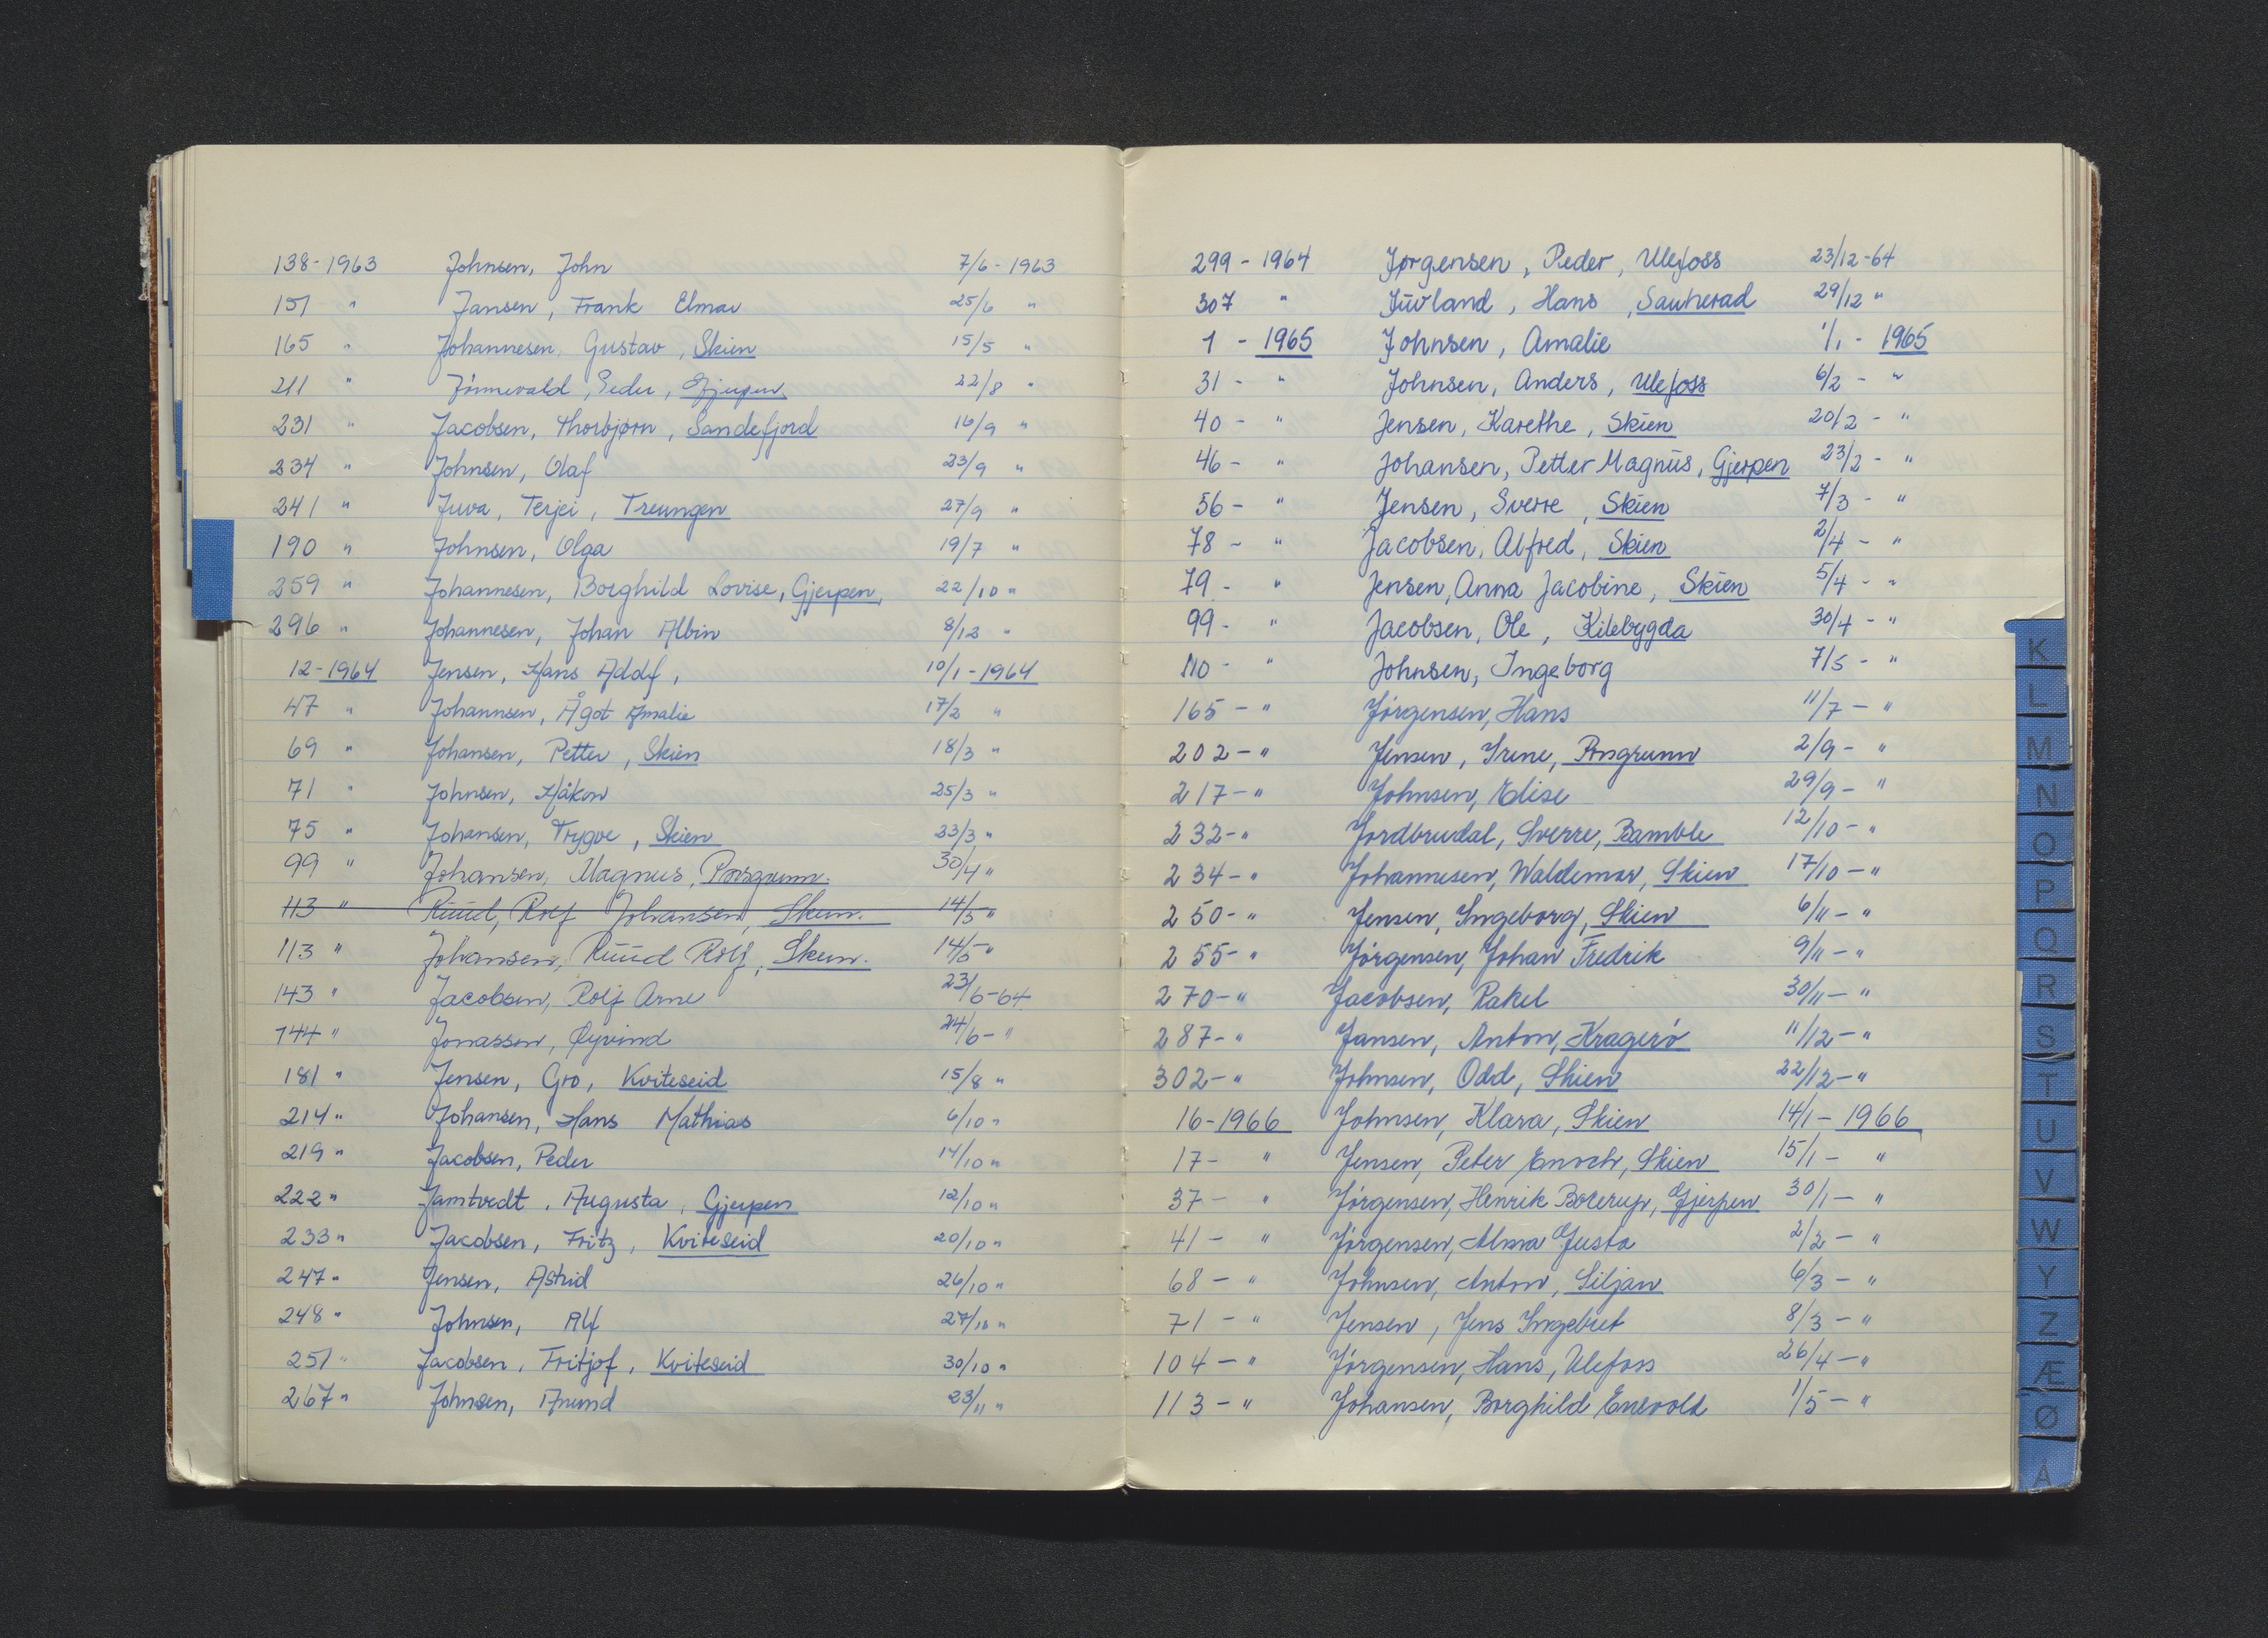 138-1963 Johnsen, John 7/6-1963
151 " Jansen, Frank Elmar 25/6 "
165 " Johannesen, Gustav, Skien 15/5 "
211 " Jönnevald, Peder, Gjerpen 22/8 "
231 " Jacobsen, Thorbjørn, Sandefjord 16/9 "
234 " Johnsen, Olaf 23/9 "
241 " Juva, Terjei, Treungen 27/9 "
190 " Johnsen, Olga 19/7 "
259 " Johannesen, Borghild Lovise, Gjerpen, 22/10 "
296 " Johannesen, Johan Albin 8/12 "
12-1964 Jensen, Hans Adolf, 10/1-1964
47 " Johannsen, Ågot Amalie 17/2 "
69 " Johansen, Petter, Skien 18/3 "
71 " Johnsen, Håkon 25/3 "
75 " Johansen, Trygve, Skien 23/3 "
99 " Johansen, Magnus, Porsgrunn. 30/4 "
113 " Ruud, Rolf Johansen, Skien. 14/5 "
113 " Johansen, Ruud Rolf, Skien. 14/5 "
143 " Jacobsen, Rolf Arne 23/6-64
144 " Jonassen, Øyvind 24/6- "
181 " Jensen, Gro, Kviteseid 15/8 "
214 " Johansen, Hans Mathias 6/10 "
219 " Jacobsen, Peder 14/10 "
222 " Jamtvedt, Augusta, Gjerpen 12/10 "
233 " Jacobsen, Fritz, Kviteseid 20/10 "
247 " Jensen, Astrid 26/10 "
248 " Johnsen, Alf 27/10 "
251 " Jacobsen, Fritjof, Kviteseid 30/10 "
267 " Johnsen, Anund 23/11 "
299-1964 Jørgensen, Peder, Ulefoss 23/12-64
307 " Juvland, Hans, Sauherad 29/12 "
1 - 1965 Johnsen, Amalie 1/1 - 1965
31 - " Johnsen, Anders, Ulefoss 6/2 - "
40 - " Jensen, Karethe, Skien 20/2 - "
46 - " Johansen, Petter Magnus, Gjerpen 23/2 - "
56 - " Jensen, Sverre, Skien 7/3 - "
78 - " Jacobsen, Alfred, Skien 2/4 - "
79 - " Jensen, Anna Jacobine, Skien 5/4 - "
99 - " Jacobsen, Ole, Kilebygda 30/4 - "
110 - " Johnsen, Ingeborg 7/5 - "
165 - " Jörgensen, Hans 11/7 - "
202 - " Jensen, Irene, Porsgrunn 2/9 - "
217 - " Johnsen, Elise 29/9 - "
232 - " Jordbrudal, Sverre, Bamble 12/10 - "
234 - " Johannesen, Waldemar, Skien 17/10 - "
250 - " Jensen, Ingeborg, Skien 6/11 - "
255 - " Jörgensen, Johan Fredrik 9/11 - "
270 - " Jacobsen, Rakel 30/11 - "
287 - " Jansen, Anton, Kragerö 11/12 - "
302 - " Johnsen, Odd, Skien 22/12 - "
16-1966 Johnsen, Klara, Skien 14/1 - 1966
17 - " Jensen, Peter Enoch, Skien 15/1 - "
37 - " Jörgensen, Henrik Borerup, Gjerpen 30/1 - "
41 - " Jörgensen, Alma Gusta 2/2 - "
68 - " Johnsen, Anton, Siljan 6/3 - "
71 - " Jensen, Jens Ingebret 8/3 - "
104 - " Jörgensen, Hans, Ulefoss 26/4 - "
113 - " Johansen, Borghild Enevold 1/5 - "
K
L
M
N
O
P
Q
R
S
T
U
V
W
Y
Z
Æ
Ø
Å